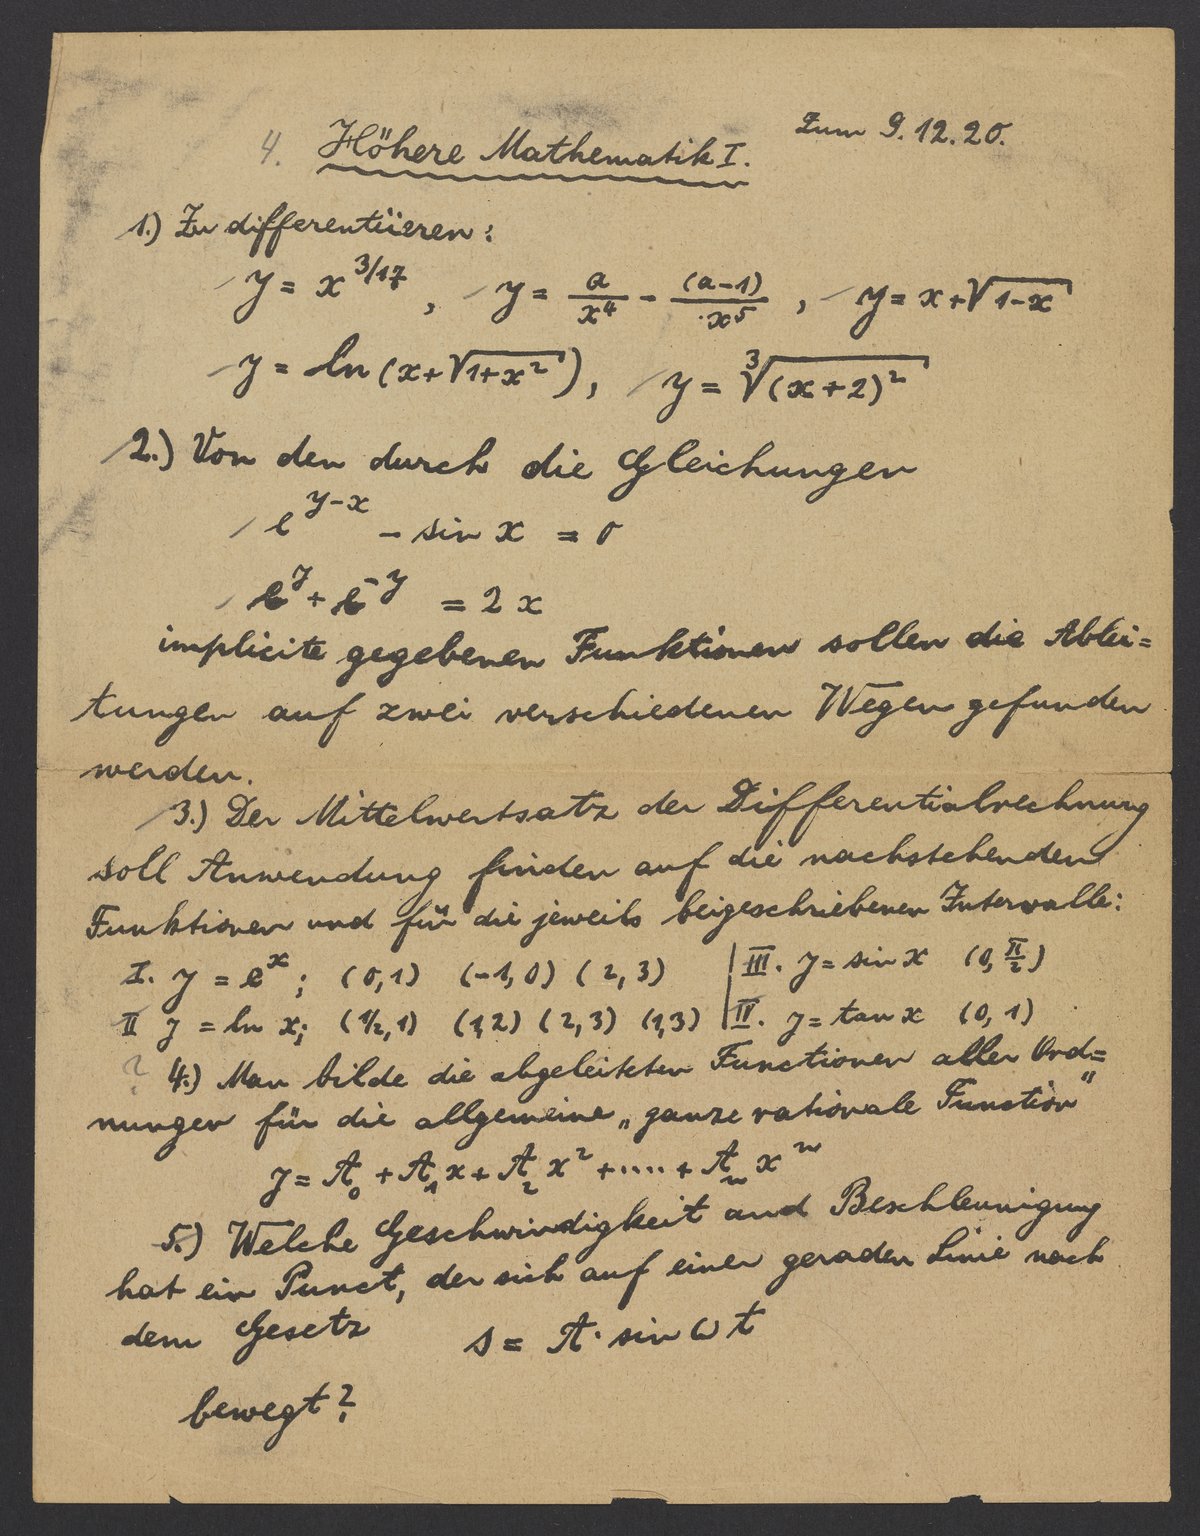 Zum 9.12.20.
4. Höhere Mathematik I.
1.) Zu differentiieren:
y = x^3/17, y = a/x^4 - (a-1)/x^5, y = x+√1-x
y = ln (x+√1+x^2), y = ∛(x+2)^2
2.) Von den durch die Gleichungen
e^y-x - sin x = 0
e^y + e^-y = 2x
implicite gegebenen Funktionen sollen die Ablei=
tungen auf zwei verschiedenen Wegen gefunden
werden.
3.) Der Mittelwertsatz der Differentialrechnung
soll Anwendung finden auf die nachstehenden
Funktionen und für die jeweils beigeschriebenen Intervalle:
I. y = e^x; (0,1) (-1,0) (2,3) | III. y = sin x (0, π/2)
II y = ln x; (1/2,1) (1,2) (2,3) (1,3) | IV. y = tan x (0, 1)
? 4.) Man bilde die abgeleiteten Functionen aller Ord=
nungen für die allgemeine „ganze rationale Function"
y = A₀ + A₁x + A₂x² + ..... + Aₙxⁿ
5.) Welche Geschwindigkeit und Beschleunigung
hat ein Punct, der sich auf einer geraden Linie nach
dem Gesetz s = A · sin ω t
bewegt?